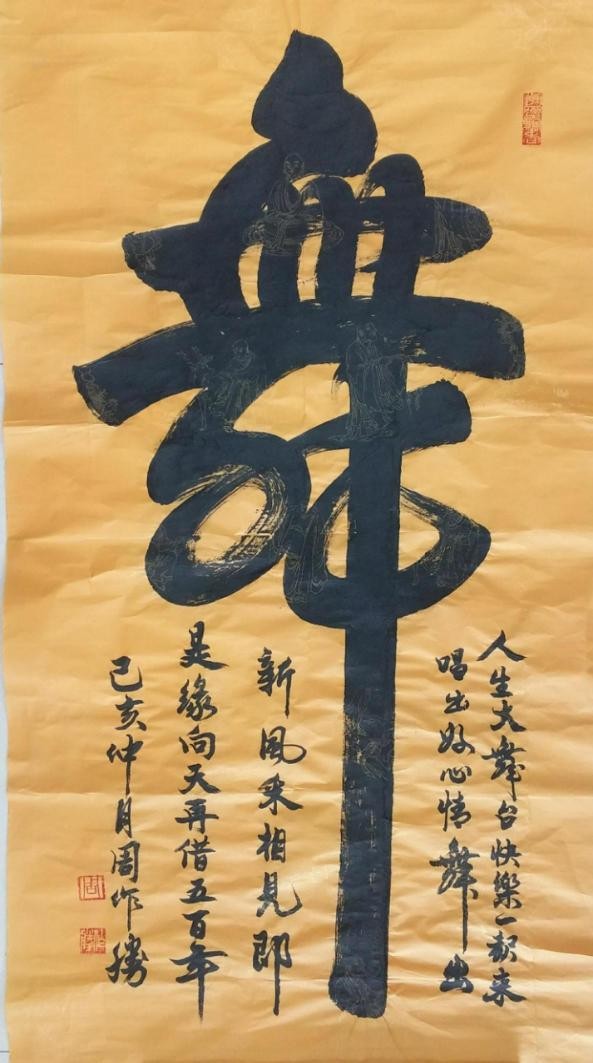 舞
人生大舞台快樂一起来
唱出好心情舞出
新風采相見即
是缘向天再借五百年
己亥仲月周作勝